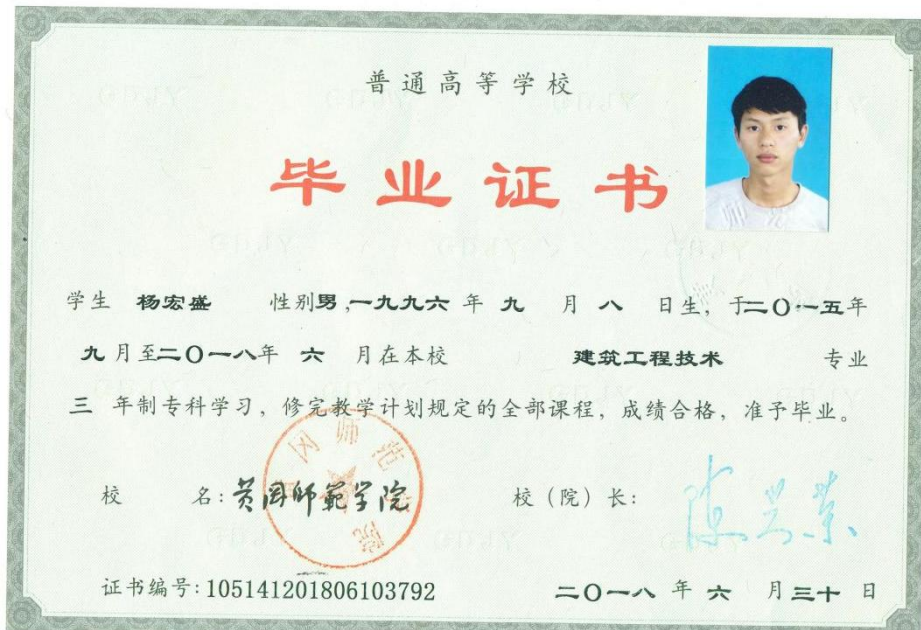 普通高等学校
毕业证书
学生 杨宏盛 性别男,一九九六年九月八日生，于二〇一五年
九月至二〇一八年六月在本校 建筑工程技术 专业
三年制专科学习，修完教学计划规定的全部课程，成绩合格，准予毕业。
校 名:黄冈师范学院 校（院）长:
证书编号:105141201806103792 二〇一八年六月三十日